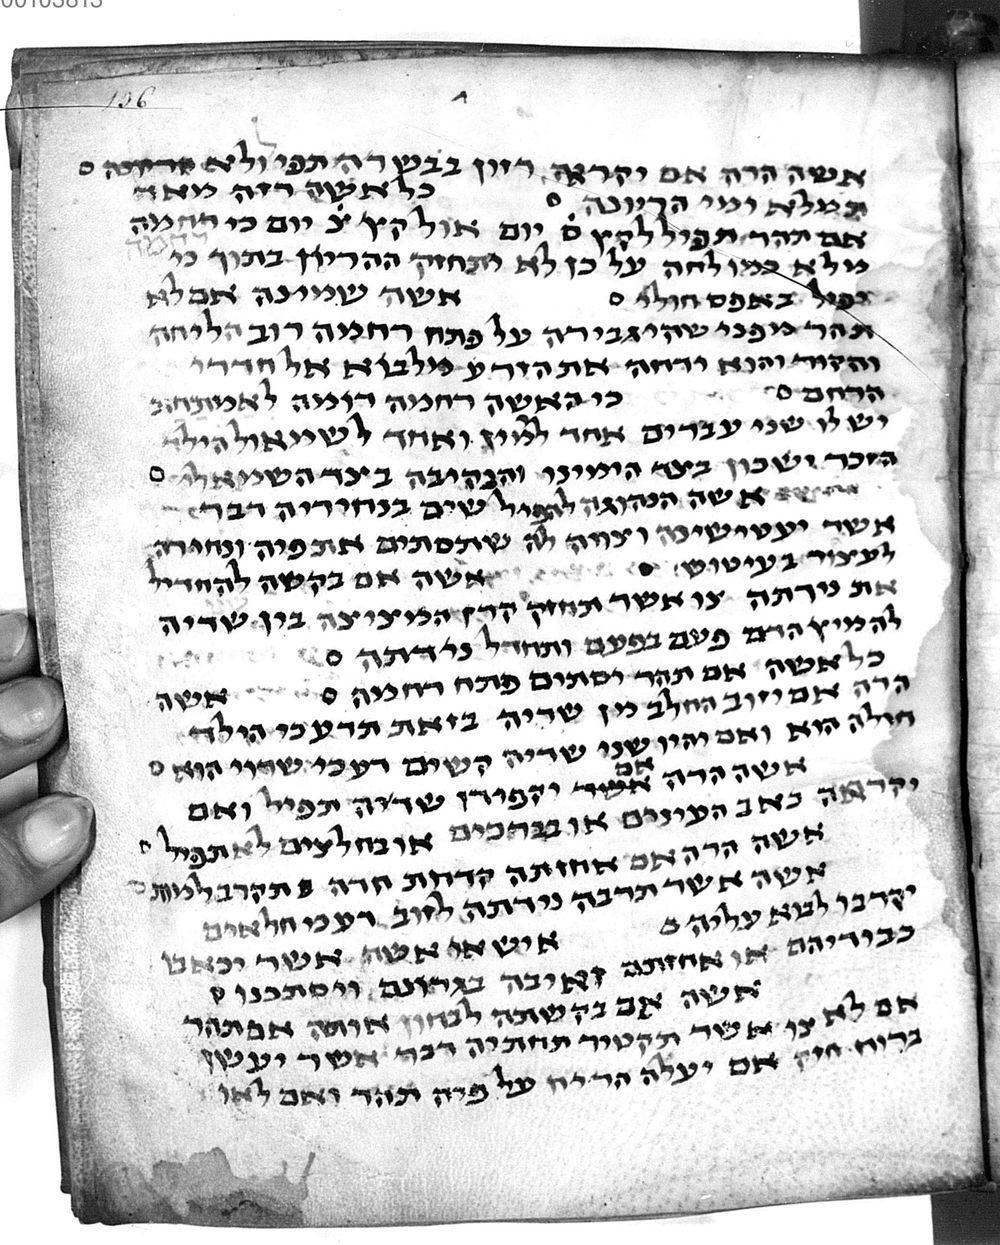 00103813
136
אשה הרה אם יקראה רזון בבשרה תפיל ולא
תמלא ימי הריונה כל אשה רזה מאד
אם תהר תפיל לקץ ס יום או לקץ צ יום כי רחמה
מלא כמו לחה על כן לא יתחזק ההריון בתוך כי
נפיל באפס חולי אשה שמינה אם לא
תהר מפני שהיגבירה על פתח רחמה רוב הליחה
והקור יהוא ידחה את הזרע מלבוא אל חדרי
הרחם כי האשה רחמה דומה לאמתחת
יש לו שני עברים אחד לימין ואחד לשמאול הילד
הזכר ישכון בצד הימיני והנקיבה בצד השמאלי
אשה הנהוגה להפיל שים בנחיריה דבר
אשר יעטישינה וצוה לה שתסתים את פיה ונחירה
לעצור בעיטוש אשה אם בקשה להחדיל
את נידתה צו אשר תחזק קרן המציצה בין שדיה
להמיץ הדם פעם בפעם ותחדל נידתה
כל אשה אם תהר יסתים פתח רחמה אשה
הרה אם יזוב החלב מן שדיה בזאת תדע כי הילד
חולה הוא ואם יהיו שני שדיה קשים דע כי שרוי הוא
אשה הרה אם יקפידן שדיה תפיל ואם
יקראה כאב העינים או בברכים או בחלצים לא תפיל
אשה הרה אם אחזתה קדחת חדה תקרב למות
אשה אשר תרבה נידתה לזוב דע כי חלאים
יקרבו לבוא עליה איש או אשה אשר יכאבו
כבודיהם או אחזתם דאיבה בגרונם ויסתכנו
אשה אם בקשתה לבחון אותה אם תהר
אם לא צו אשר תקטיר תחתיה דבר אשר יעשן
בריח חזק אם יעלה הריח על פיה תהר ואם לאו